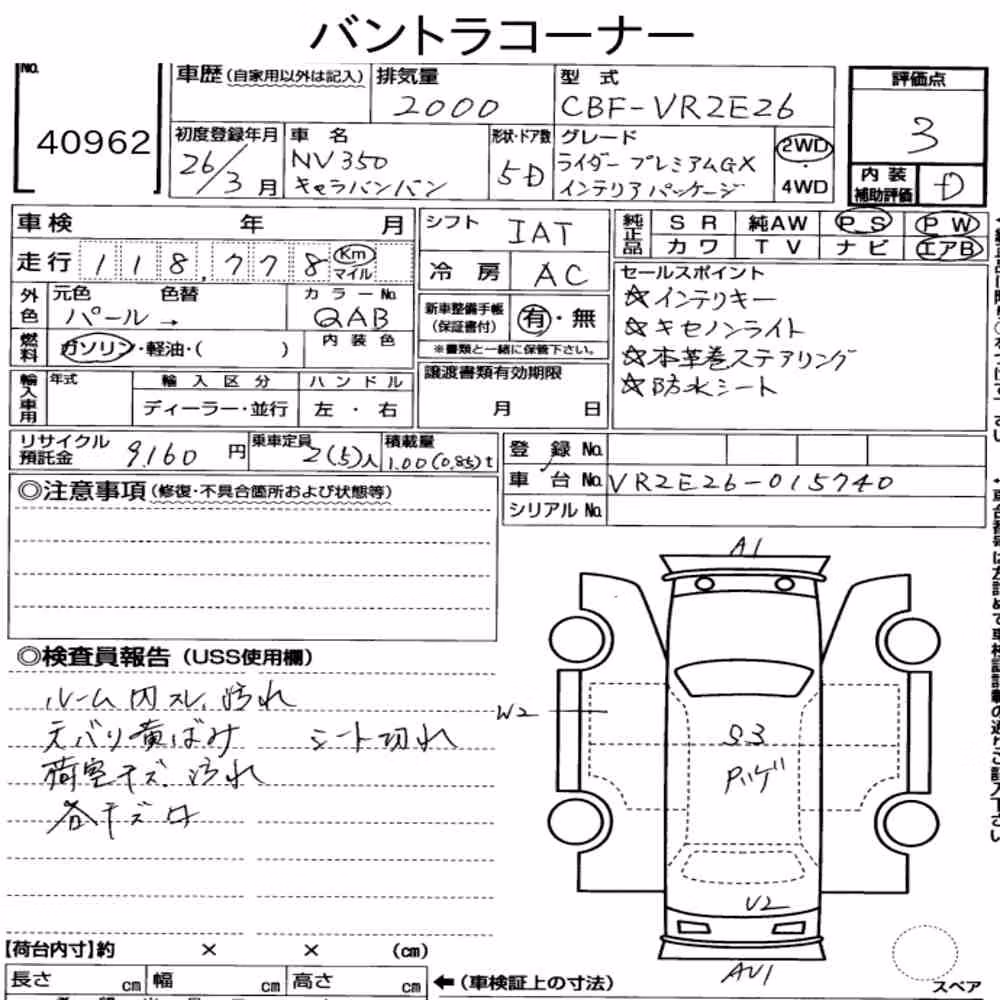 バントラコーナー
No.
40962
車歴(自家用以外は記入)
排気量
2000
型式
CBF-VR2E26
評価点
3
初度登録年月
26/3月
車名
NV350
キャラバンバン
形状・ドア数
5D
グレード
ライダー プレミアムGX
インテリアパッケージ
2WD
・
4WD
内装
補助評価
D
車検 年 月
走行 118,778 Km
マイル
シフト IAT
冷房 AC
純正品
SR 純AW PS PW
カワ TV ナビ エアB
外色
元色 色替
パール→
カラーNo.
QAB
燃料
ガソリン・軽油・( )
内装色
新車整備手帳
(保証書付)
有・無
※書類と一緒に保管下さい。
セールスポイント
☆インテリキー
☆キセノンライト
☆本革巻ステアリング
☆防水シート
輸入車用
年式
輸入区分
ディーラー・並行
ハンドル
左・右
譲渡書類有効期限
月 日
リサイクル
預託金
9,160円
乗車定員
2(5)人
積載量
1.00(0.85)t
登録No.
車台No. VR2E26-015740
シリアルNo.
◎注意事項(修復・不具合箇所および状態等)
◎検査員報告(USS使用欄)
ルーム内スレ、汚れ
天バリ黄ばみ シート切れ
荷室キズ、汚れ
各キズ少
A1
W2
S3
U2
AU1
【荷台内寸】約 × × (cm)
長さ cm 幅 cm 高さ cm
←(車検証上の寸法)
スペア